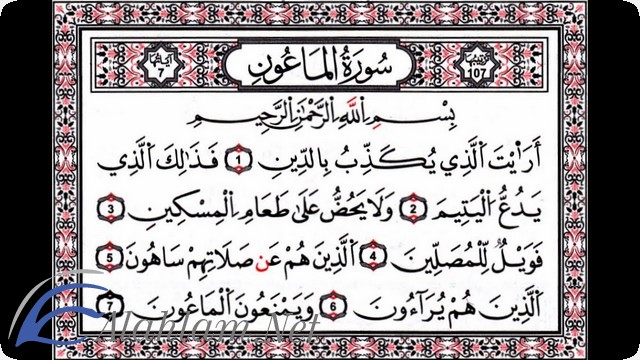 آياتها 7
سُورَةُ المَاعُونِ
ترتيبها 107
بِسْمِ اِ۬للَّهِ اِ۬لرَّحْمَٰنِ اِ۬لرَّحِيمِ
أَرَٰيْتَ اَ۬لَّذِي يُكَذِّبُ بِالدِّينِ 1 فَذَٰلِكَ اَ۬لَّذِي
يَدُعُّ اُ۬لْيَتِيمَ 2 وَلَا يَحُضُّ عَلَىٰ طَعَامِ اِ۬لْمِسْكِينِ 3
فَوَيْلٌ لِّلْمُصَلِّينَ 4 اَ۬لَّذِينَ هُمْ عَن صَلَاتِهِمْ سَاهُونَ 5
اَ۬لَّذِينَ هُمْ يُرَآءُونَ 6 وَيَمْنَعُونَ اَ۬لْمَاعُونَ 7
Alahlam.Net